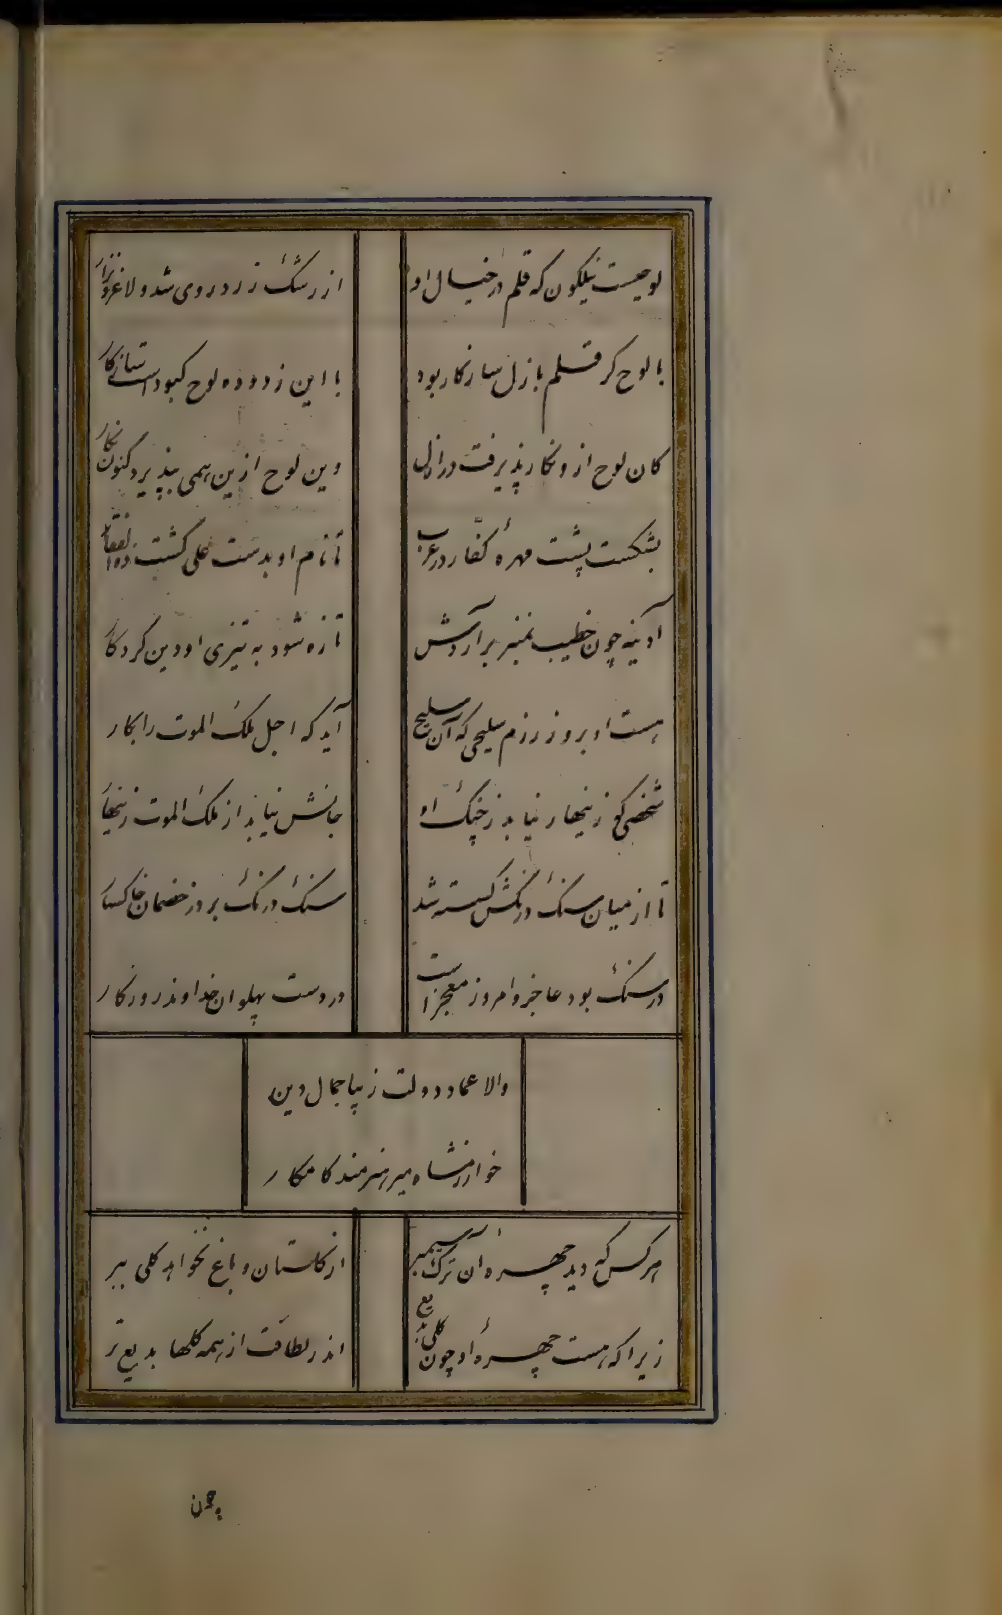 لوحیست نیلکون که قلم در خیال او از رشک زرد روی شد و لاغر و نزار
با لوح کر قلم بازل سازکار بود با این زدوده لوح کبود است سازکار
کان لوح از و نکار پذیرفت در ازل وین لوح ازین همی بپذیرد کنون نکار
بشکست پشت مهرهٔ کفار در عرب تا نام او بدست علی کشت ذوالفقار
آدینه چون خطیب بمنبر بر آردش تازه شود به تیزی او دین کردکار
هست او بروز رزم سلیحی که آن سلیح آید که اجل ملک الموت را بکار
شخصی کو زینهار نیابد ز چنک او جانش نیابد از ملک الموت زینهار
تا از میان سنک درنکش کسسته شد سنک درنک برد ز خصمان خاکسار
در سنک بود عاجز و امروز معجز است در دست پهلوان خداوند روزکار
والا عماد دولت زیبا جمال دین
خوارزمشاه میر هنرمند کامکار
هر کس که دید چهرهٔ آن ترک سیمبر از کلستان و باغ نخواهد کلی ببر
زیرا که هست چهرهٔ او چون کلی بدیع اندر لطافت از همه کلها بدیع تر
چون